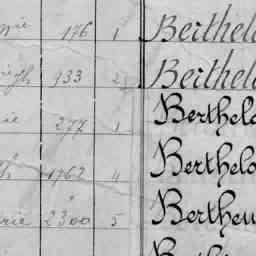 nie 176 1 Berthelo
eph 933 2 Berthelo
ie 277 1 Berthelo
1762 4 Berthelo
rie 2300 5 Bertheu